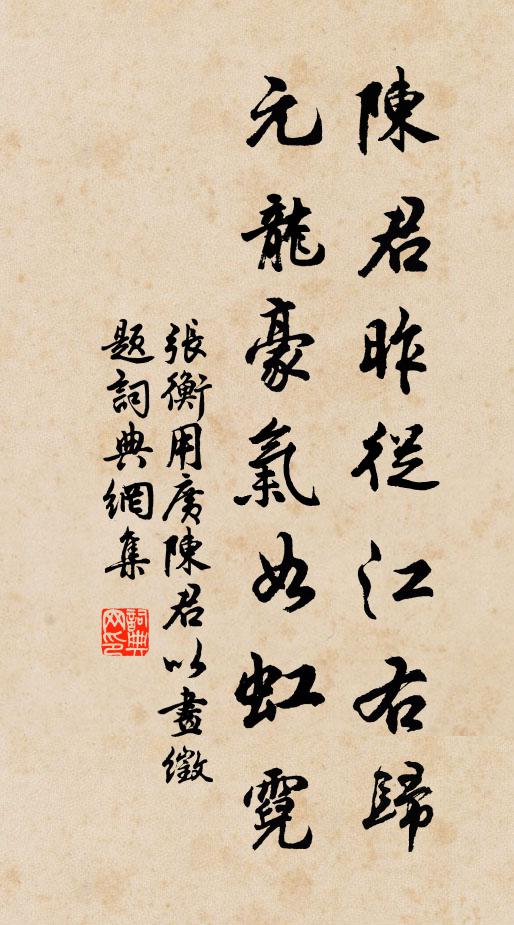 陳君昨從江右歸
元龍豪氣如虹霓
張衡用賡陳君以畫徵
題詞典網集
詞典
网印